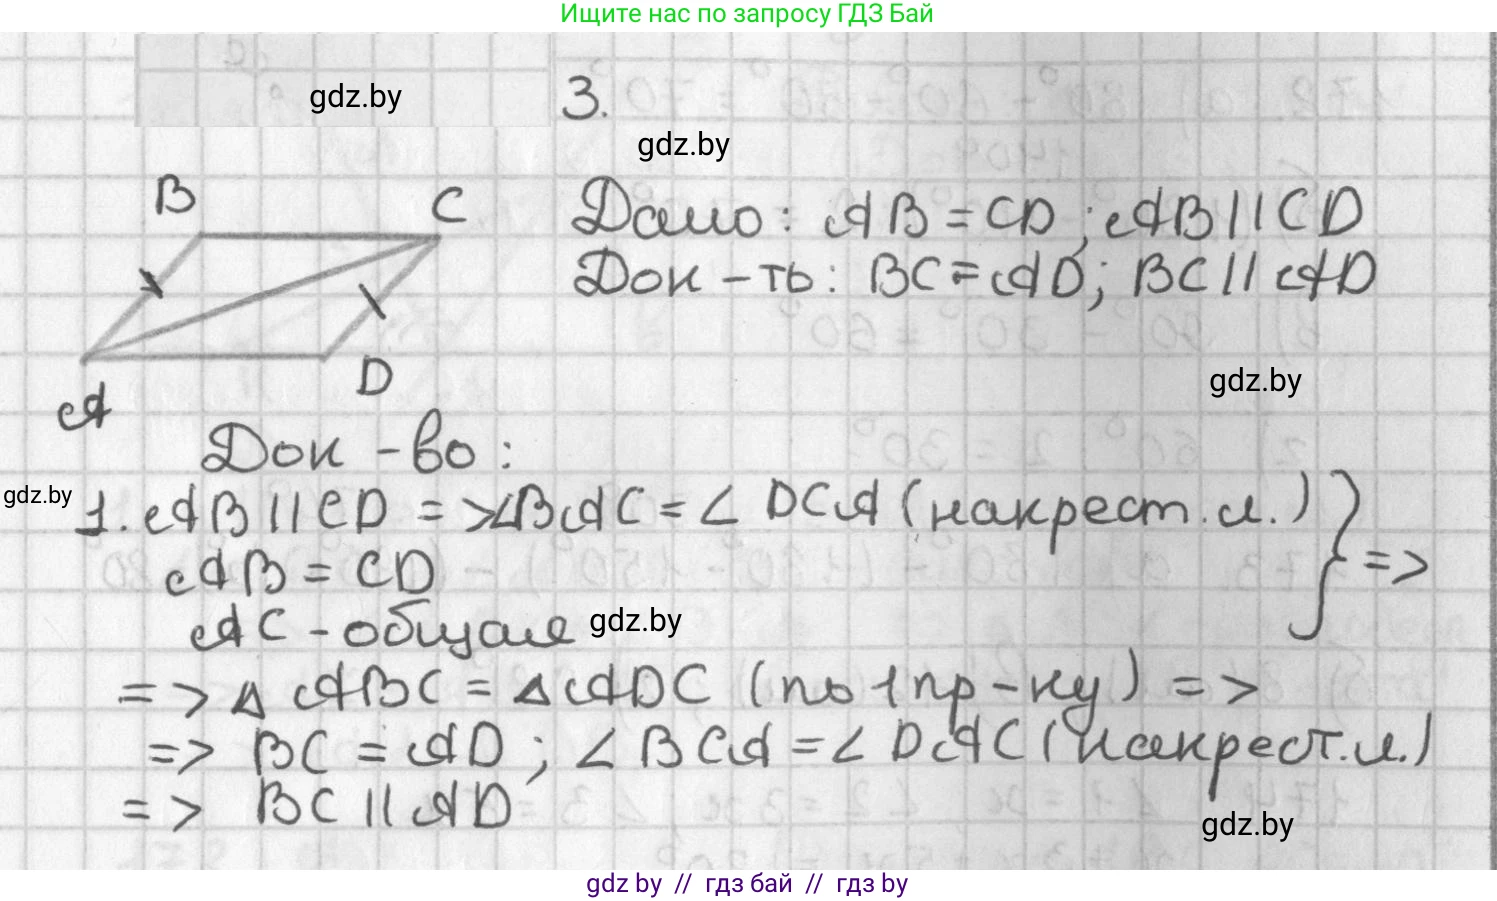 Ищите нас по запросу ГДЗ Бай
gdz.by
3.
gdz.by
B
C
Дано: AB = CD; AB || CD
Док-ть: BC = AD; BC || AD
gdz.by
D
A
Док-во:
gdz.by
1. AB || CD => ∠BAC = ∠DCA (накрест. л.)
AB = CD } =>
AC - общая
gdz.by
=> ∆ ABC = ∆ ADC (по 1 пр-ку) =>
=> BC = AD; ∠BCA = ∠DAC (накрест. л.)
=> BC || AD
gdz.by
gdz by // гдз бай // гдз by